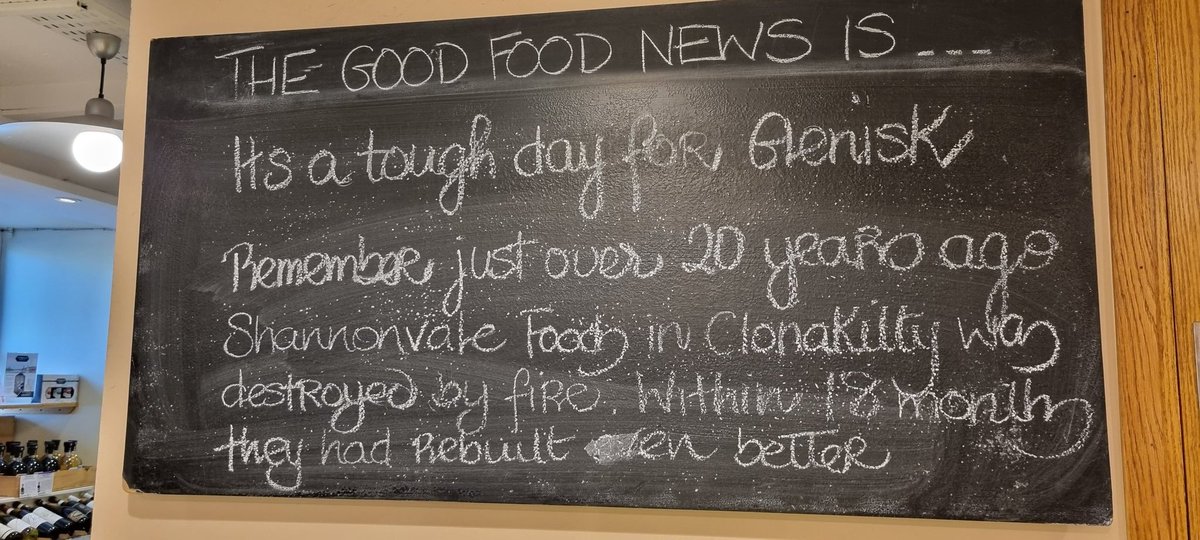 THE GOOD FOOD NEWS IS ---
Its a tough day for Glenisk
Remember just over 20 years ago
Shannonvale Foods in Clonakilty was
destroyed by fire. Within 18 months
they had Rebuilt even better